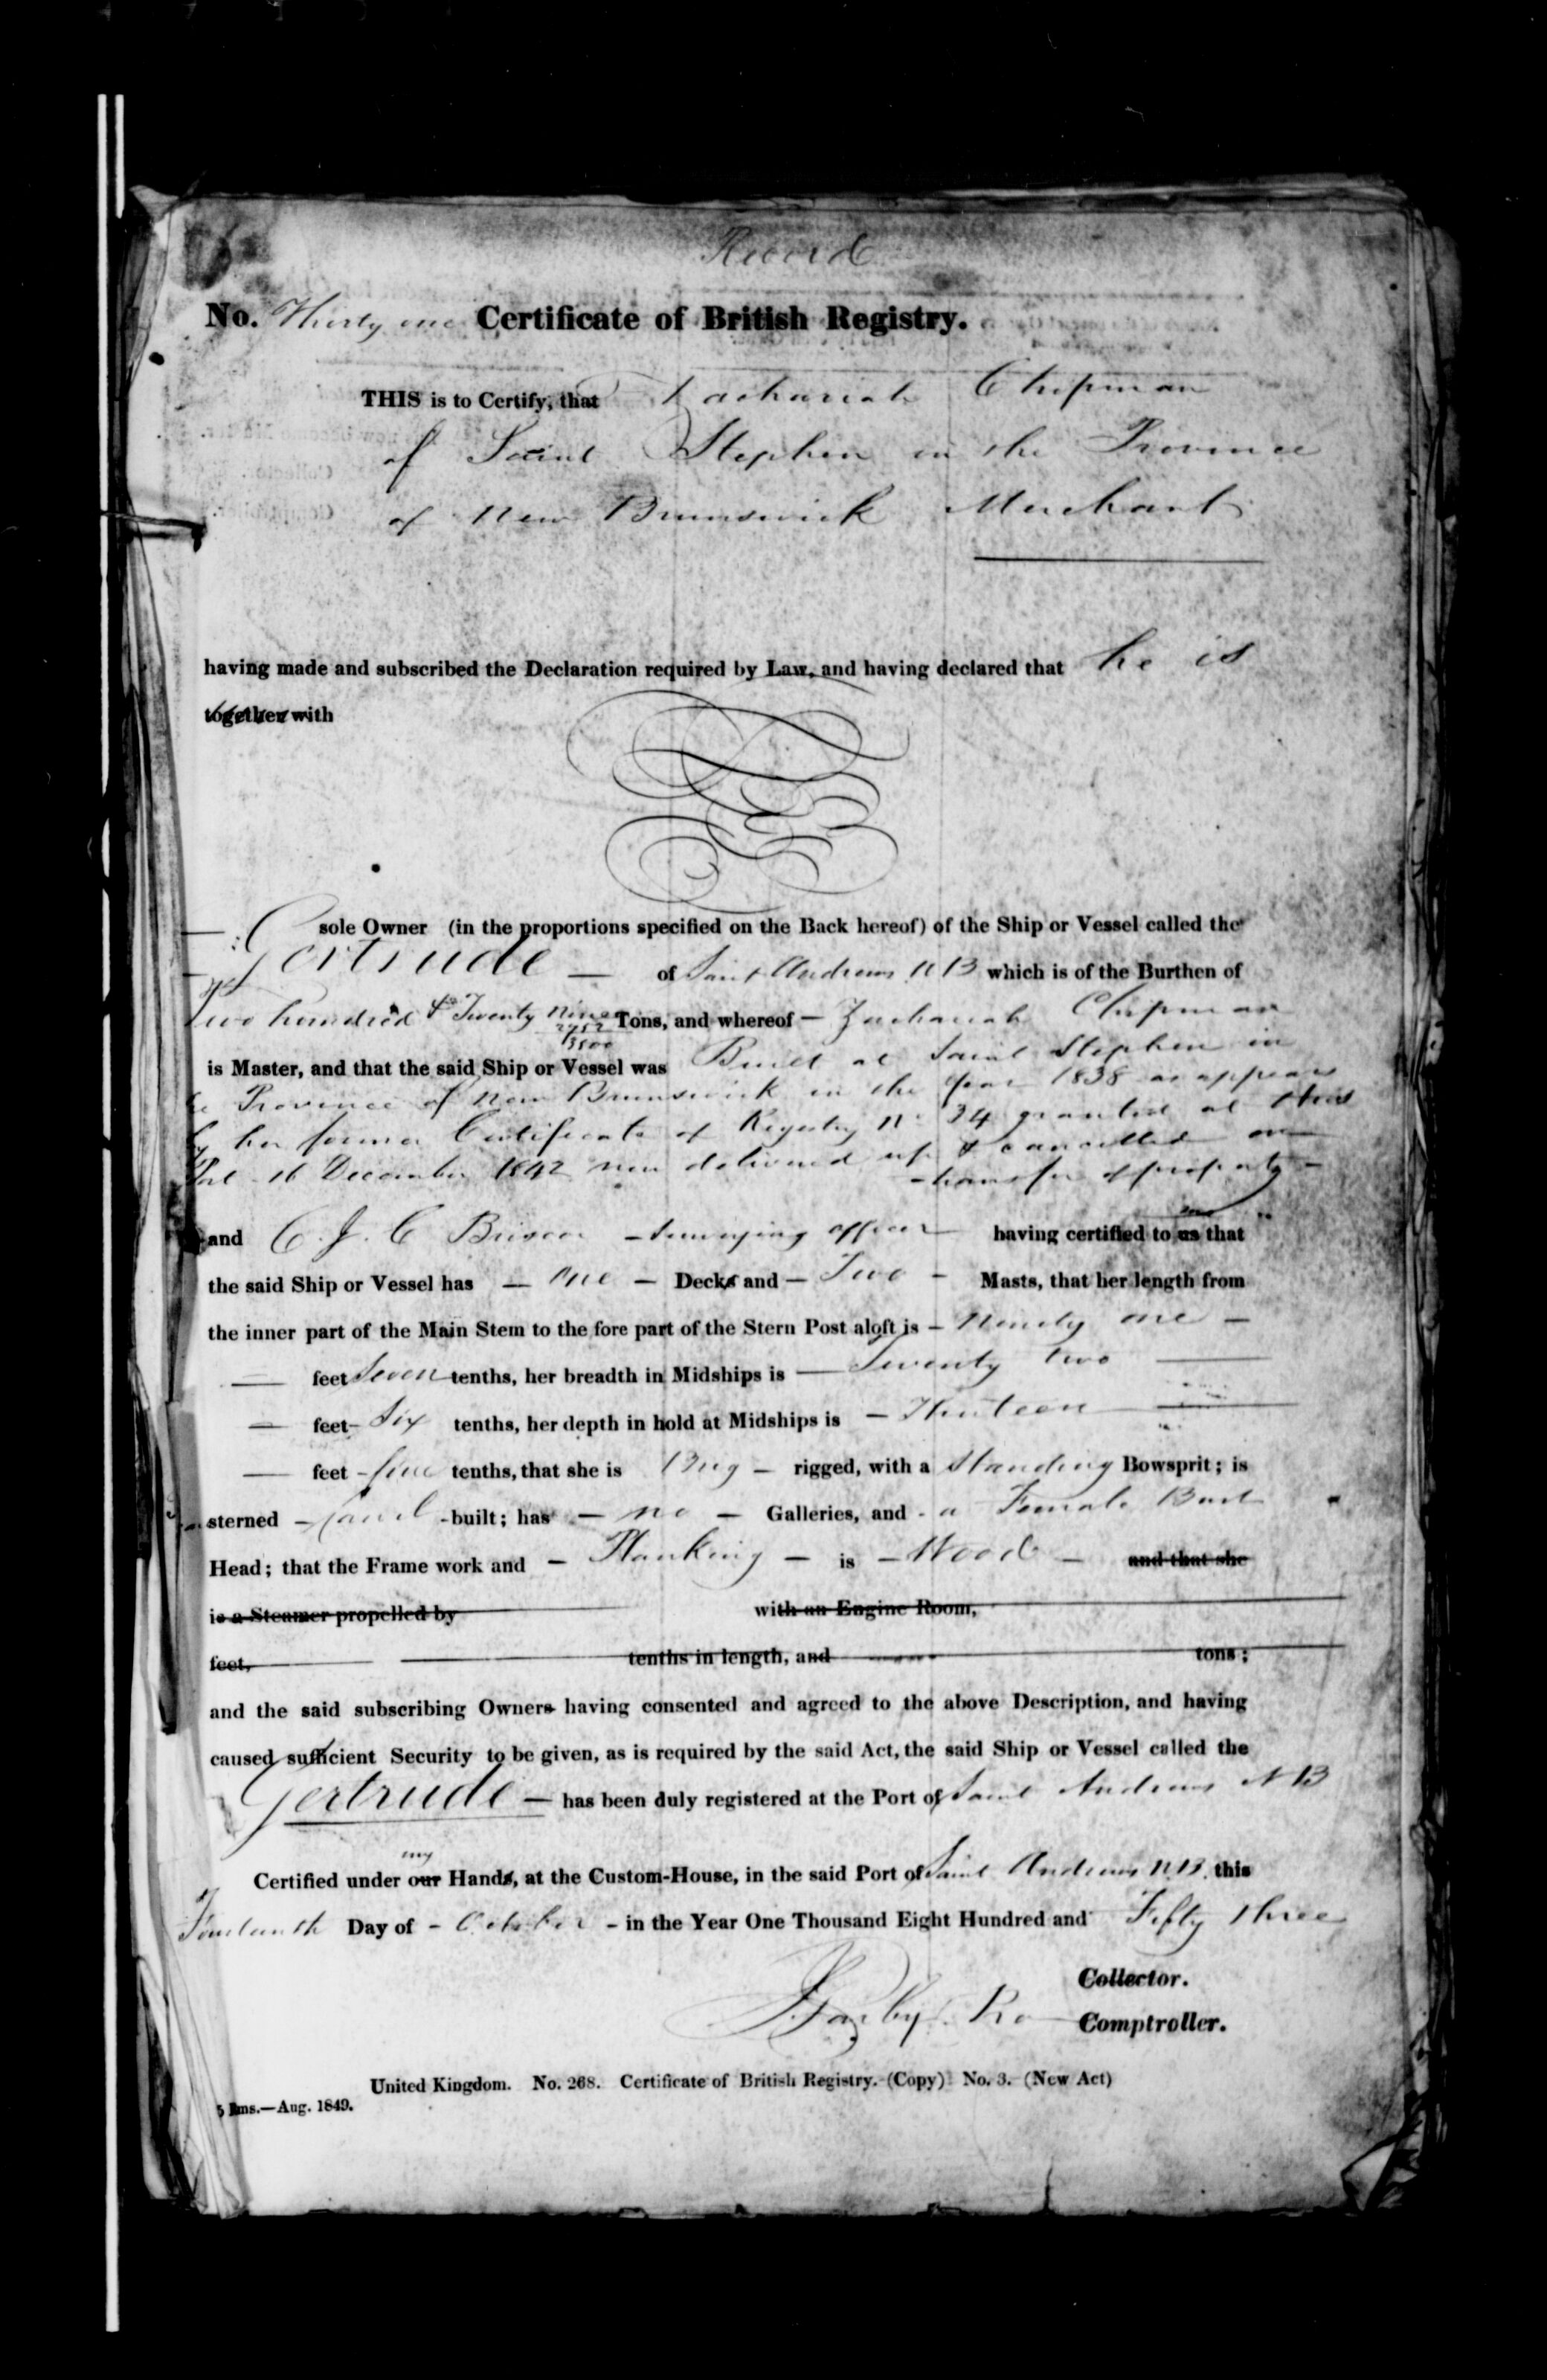 Record
No. Thirty one Certificate of British Registry.
THIS is to Certify, that Zachariah Chipman
of Saint Stephen in the Province
of New Brunswick Merchant
having made and subscribed the Declaration required by Law, and having declared that he is
together with
sole Owner (in the proportions specified on the Back hereof) of the Ship or Vessel called the
Gertrude — of Saint Andrews N B which is of the Burthen of
Two hundred & Twenty Nine Tons, and whereof — Zachariah Chipman
is Master, and that the said Ship or Vessel was Built at Saint Stephen in
Province of New Brunswick in the year 1838 as appears
by her former Certificate of Registry No 24 granted at this
Port 16 December 1842 now delivered up & cancelled on
— transfer of property —
and C. J. C Briscoe — Surveying officer having certified to us that
the said Ship or Vessel has — One — Decks and — Two — Masts, that her length from
the inner part of the Main Stem to the fore part of the Stern Post aloft is — Ninety one —
— feet Seven tenths, her breadth in Midships is — Twenty two —
— feet — Six tenths, her depth in hold at Midships is — Thirteen —
— feet — five tenths, that she is Brig — rigged, with a Standing Bowsprit; is
sterned — Carvel - built; has — no — Galleries, and - a Female Bust
Head; that the Frame work and — Planking — is — Wood — and that she
is a Steamer propelled by with an Engine Room,
feet, tenths in length, and tons;
and the said subscribing Owners having consented and agreed to the above Description, and having
caused sufficient Security to be given, as is required by the said Act, the said Ship or Vessel called the
Gertrude — has been duly registered at the Port of Saint Andrews N B
my
Certified under our Hands, at the Custom-House, in the said Port of Saint Andrews N.B. this
Fourteenth Day of — October — in the Year One Thousand Eight Hundred and Fifty three
Collector.
Comptroller.
United Kingdom. No. 268. Certificate of British Registry. (Copy) No. 3. (New Act)
5 Rms.—Aug. 1849.